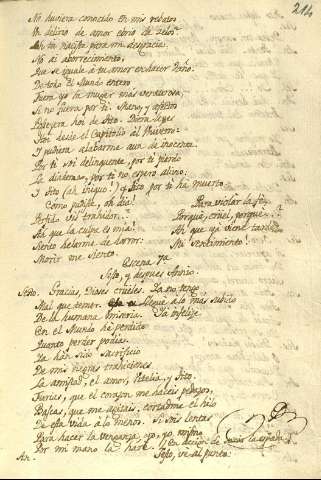 214
No huviera conocido en mis rebatos
Un delirio de amor ebrio de zelos
Ah tu naciste para mi desgracia
No ai aborrecimiento,
Que se iguale à tu amor en hacer daño.
De todo el Mundo entero
Fuera yo la muger mas venturosa,
Si no fuera por ti. Mano, y afectos
hoi de Tito. Diera leyes
hoi desde el Capitolio al Universo:
Y pudiera alabarme aun de inocente.
Por ti soi delinquente, por ti pierdo
La diadema, por ti no espero alivio;
Y Tito (ah iniquo!) y Tito por ti ha muerto
Como pudiste, oh dia!
Perfido vil trahidor.
Ah que la culpa es mia!
Siento helarme de horror:
Morir me siento
Para violar la fe,
Porquè, cruel, porque
Ah que ya viene tarde
Mi sentimiento!
Escena 7a
Sesto, y despues Annio.
Sesto. Gracias, Dioses crueles. Ya no tengo
Mal que temer. Lleguè a lo mas subido
De la humana miseria. Ya infelize
En el Mundo he perdido
Quanto perder podia.
Ya han sido sacrificio
De mis negras trahiciones
La amistad, el amor, Vitelia, y Tito.
Furias, que el corazon me haceis pedazos,
Bascas, que me agitais, cortadme el hilo
De esta vida à lo menos. Si sois lentas
Para hacer la venganza, yo, yo mismo
Por mi mano la haré. En accion de sacar la espada
An. Sesto, ve al punto: